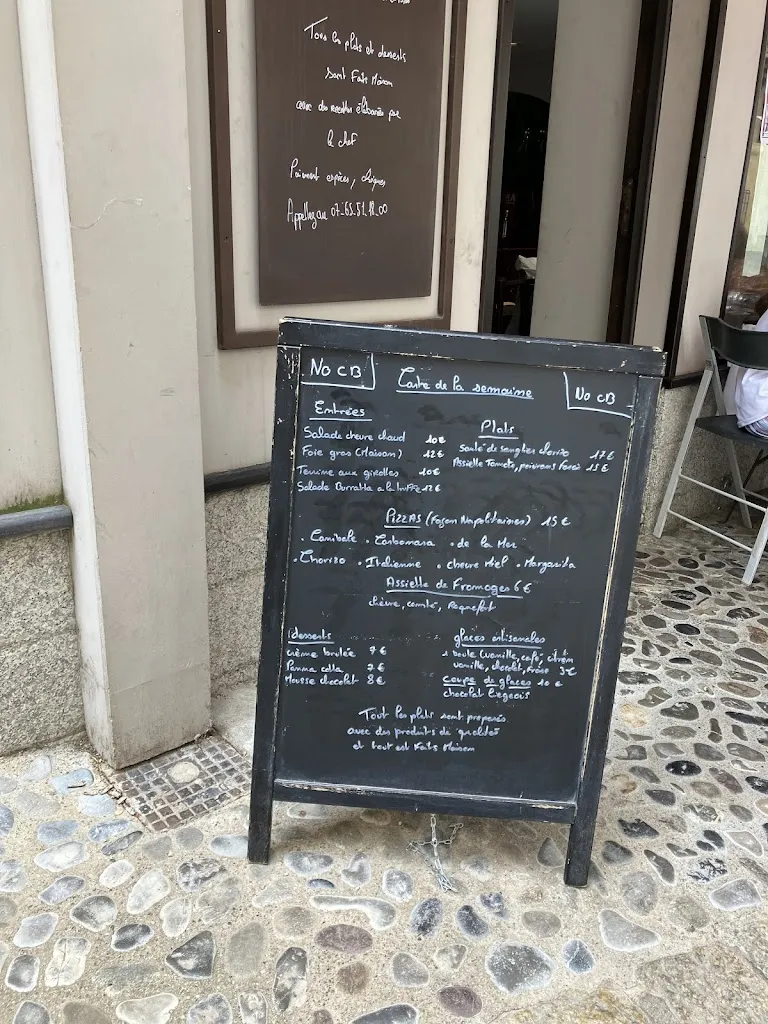 Tous les plats et desserts
sont Faits Maison
avec des recettes élaborées par
le chef
Paiement espèces, chèques
Appellez au 07.65.51.18.00
No CB
Carte de la semaine
No CB
Entrées
Salade chevre chaud 10€
Foie gras (Maison) 12€
Terrine aux girolles 10€
Salade Burratta a la truffe 12€
Plats
Sauté de sanglier chorizo 17€
Assiette Tomate, poivrons farci 15€
PIZZAS (Façon Napolitaines) 15€
. Canibale . Carbonara . de la Mer
. Chorizo . Italienne . chevre Miel . Margarita
Assiette de Fromages 6€
chèvre, comté, Roquefort
desserts
crème brulée 7€
Panna cotta 7€
Mousse chocolat 8€
glaces artisanales
1 boule (vanille, café, citron
vanille, chocolat, fraise 3€
coupe de glaces 10€
chocolat liegeois
Tout les plats sont proposés
avec des produits de qualités
et tout est Faits Maison